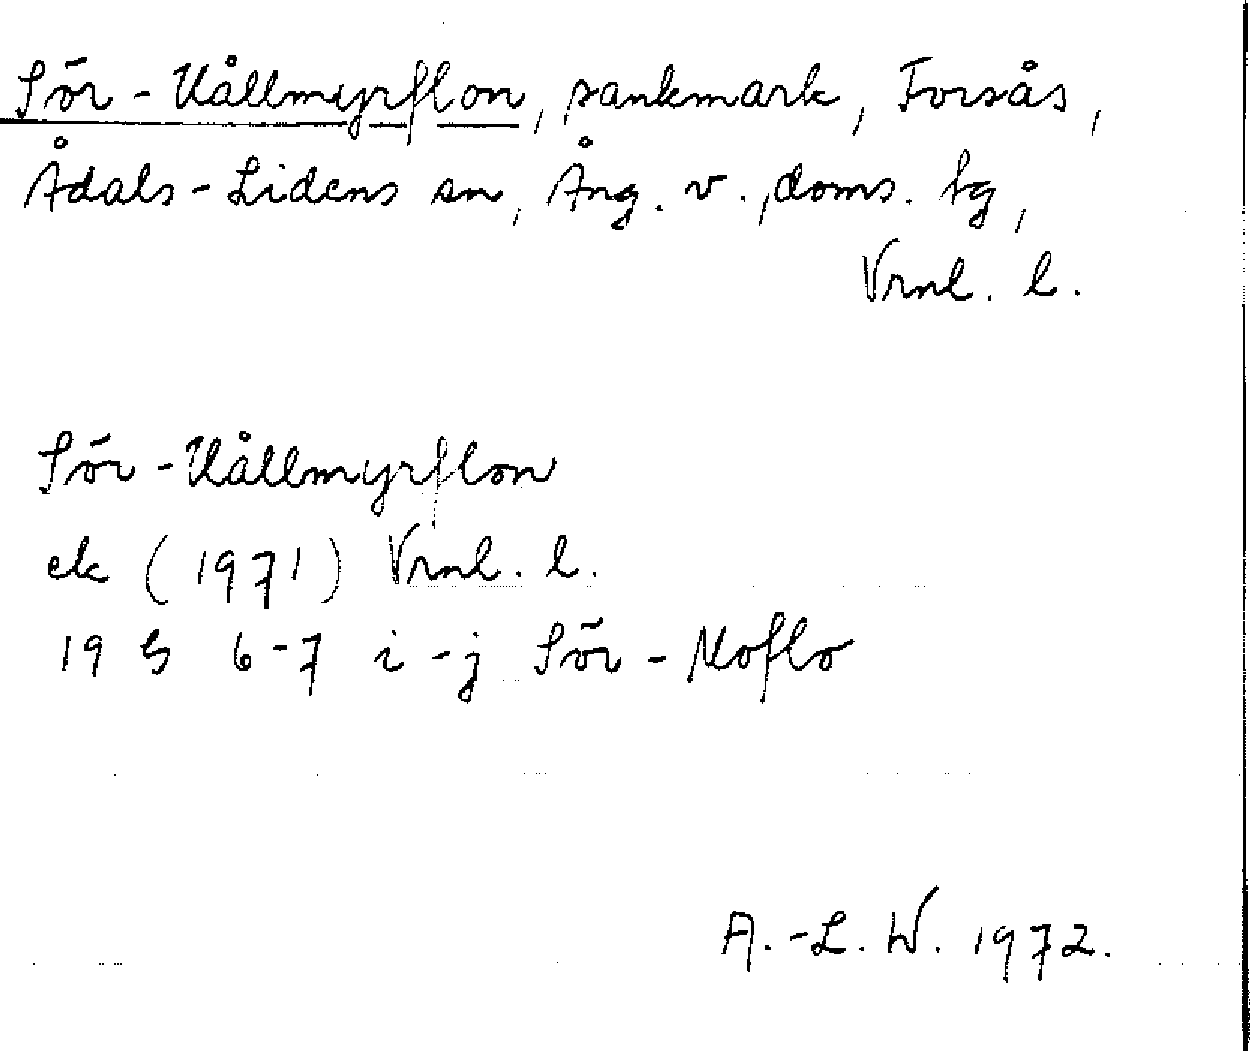 Sör-Kållmyrflon, sankmark, Forsås,
Ådals-Lidens sn, Ång. v., doms. tg,
Vrnl. l.
Sör-Kållmyrflon
ek (1971) Vrnl. l.
19 G 6-7 i-j Sör-Moflo
A.-L. W. 1972.